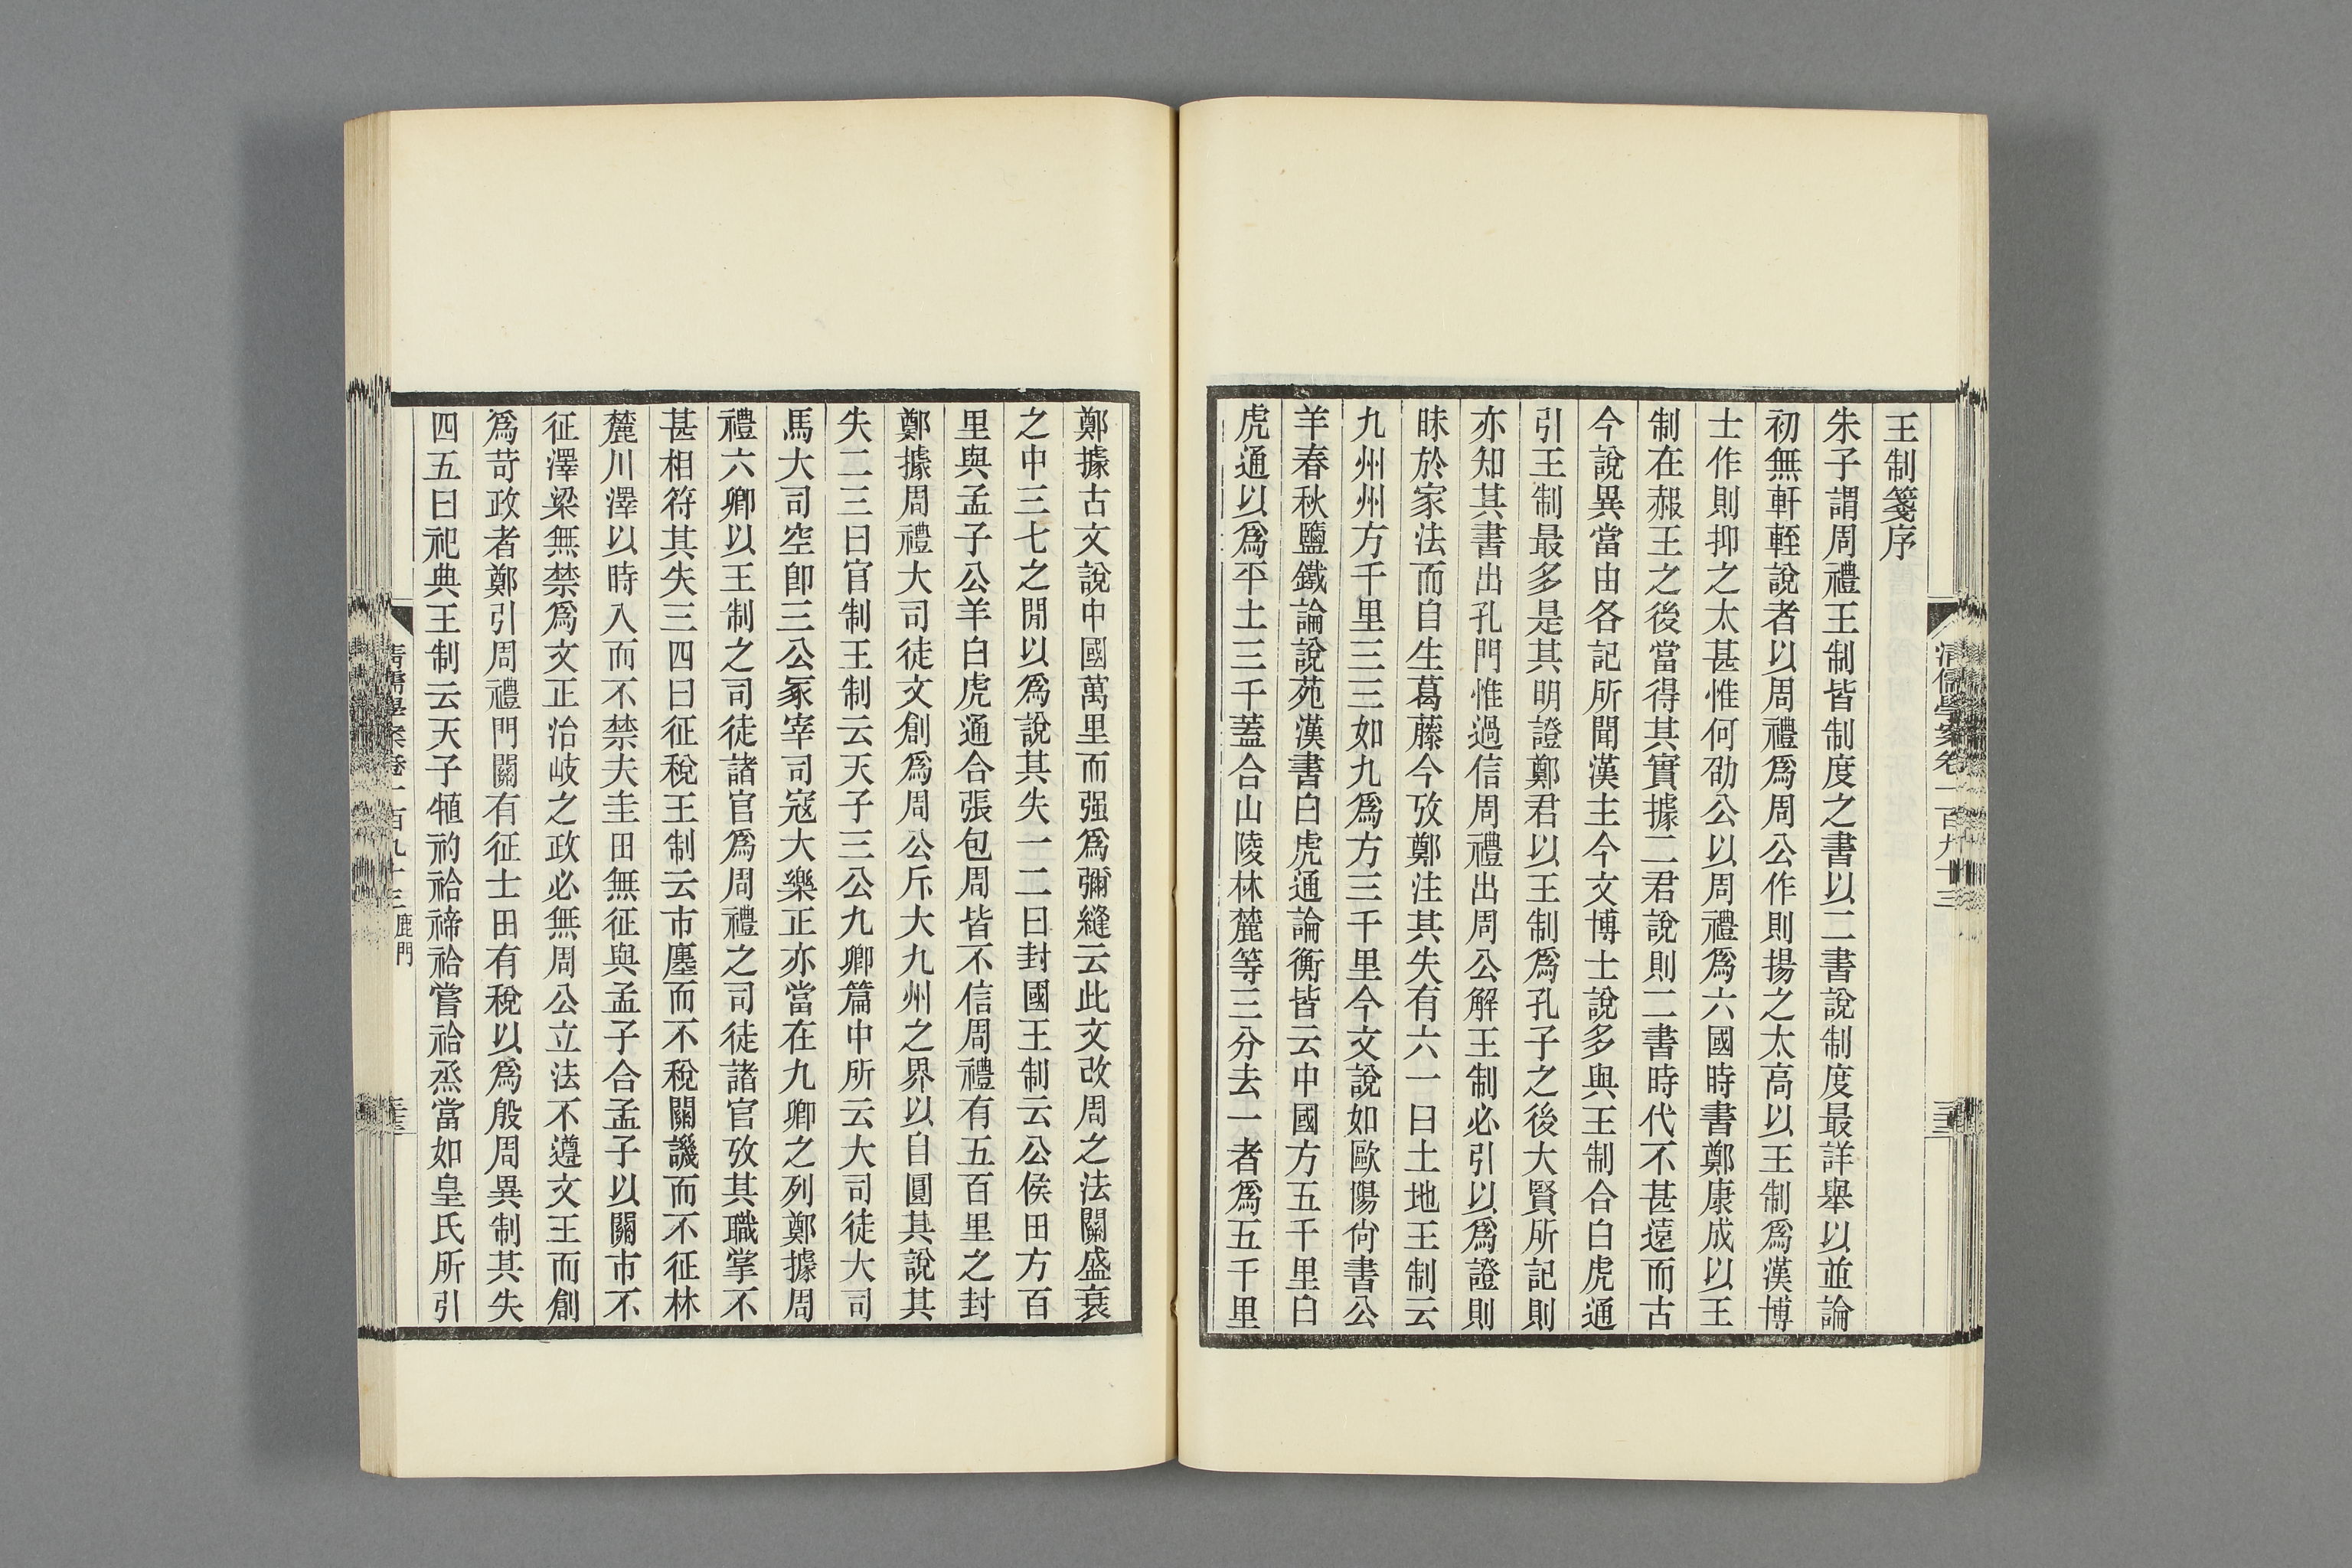 王制箋序
朱子謂周禮王制皆制度之書以二書說制度最詳舉以並論
初無軒輊說者以周禮爲周公作則揚之太高以王制爲漢博
士作則抑之太甚惟何劭公以周禮爲六國時書鄭康成以王
制在赧王之後當得其實據二君說則二書時代不甚遠而古
今說異當由各記所聞漢主今文博士說多與王制合白虎通
引王制最多是其明證鄭君以王制爲孔子之後大賢所記則
亦知其書出孔門惟過信周禮出周公解王制必引以爲證則
昧於家法而自生葛藤今攷鄭注其失有六一曰土地王制云
九州州方千里三三如九爲方三千里今文說如歐陽尙書公
羊春秋鹽鐵論說苑漢書白虎通論衡皆云中國方五千里白
虎通以爲平土三千蓋合山陵林麓等三分去一者爲五千里
清儒學案卷一百九十三
鄭據古文說中國萬里而强爲彌縫云此文改周之法關盛衰
之中三七之閒以爲說其失一二曰封國王制云公侯田方百
里與孟子公羊白虎通合張包周皆不信周禮有五百里之封
鄭據周禮大司徒文創爲周公斥大九州之界以自圓其說其
失二三曰官制王制云天子三公九卿篇中所云大司徒大司
馬大司空卽三公冢宰司寇大樂正亦當在九卿之列鄭據周
禮六卿以王制之司徒諸官爲周禮之司徒諸官攷其職掌不
甚相符其失三四曰征稅王制云市廛而不稅關譏而不征林
麓川澤以時入而不禁夫圭田無征與孟子合孟子以關市不
征澤梁無禁爲文正治岐之政必無周公立法不遵文王而創
爲苛政者鄭引周禮門關有征士田有稅以爲殷周異制其失
四五曰祀典王制云天子犆礿祫禘祫嘗祫烝當如皇氏所引
清儒學案卷一百九十三 鹿門